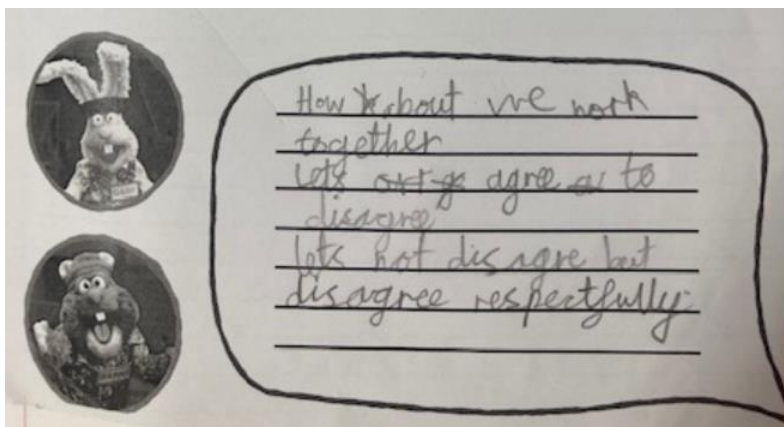 How about we work
together
lets agree to
disagree
lets not disagre but
disagree respectfully.